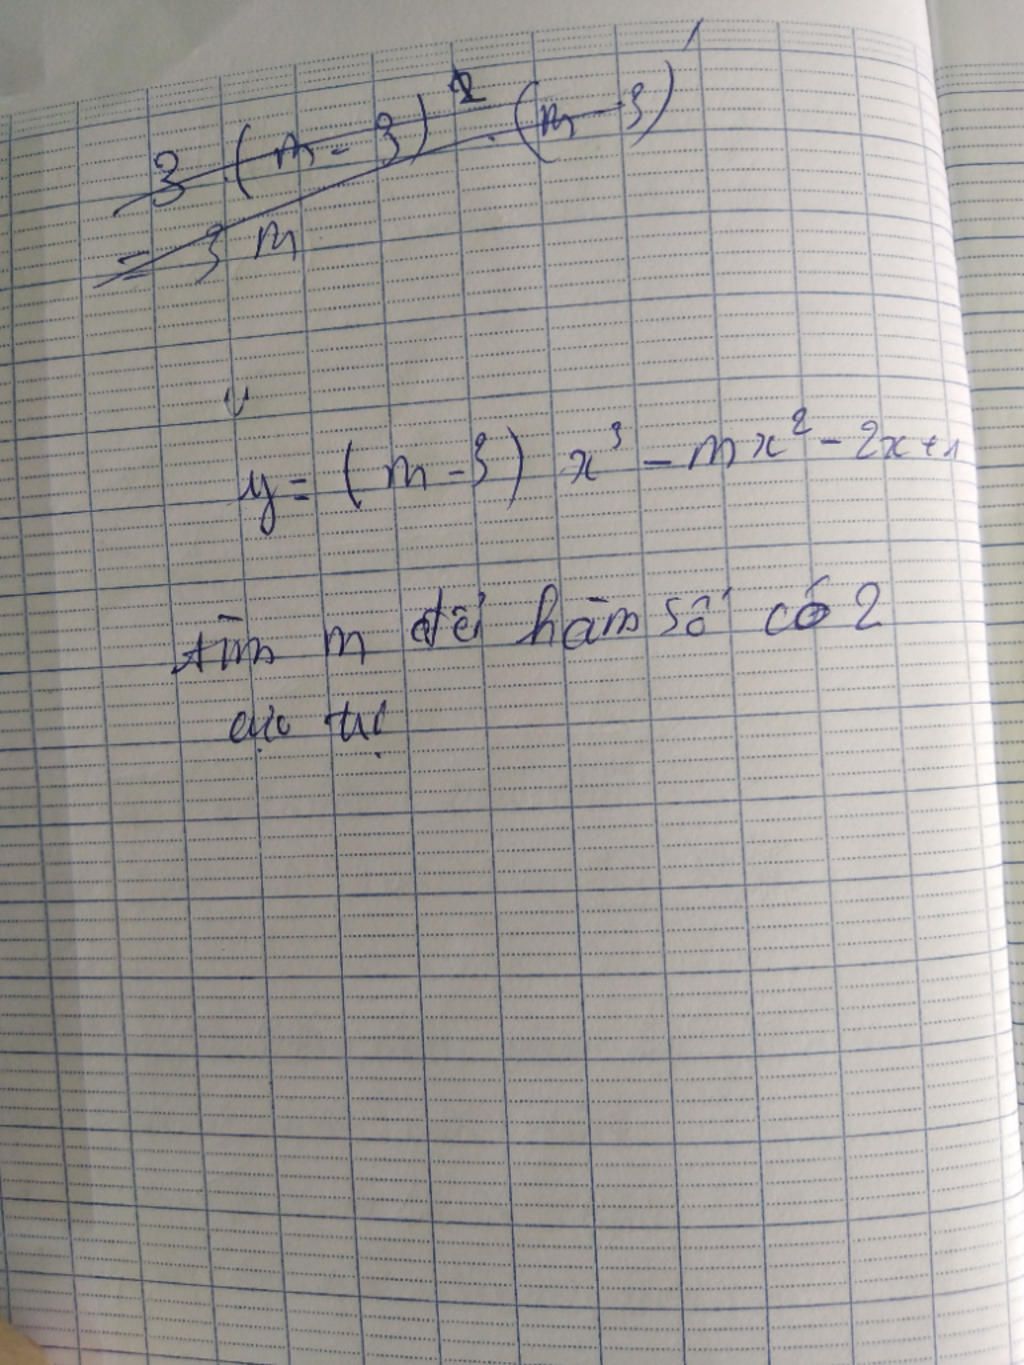 3.(m-3)² . (m-3)
= 3m
y = (m-3) x³ - mx² - 2x + 1
tìm m để hàm số có 2
cực trị